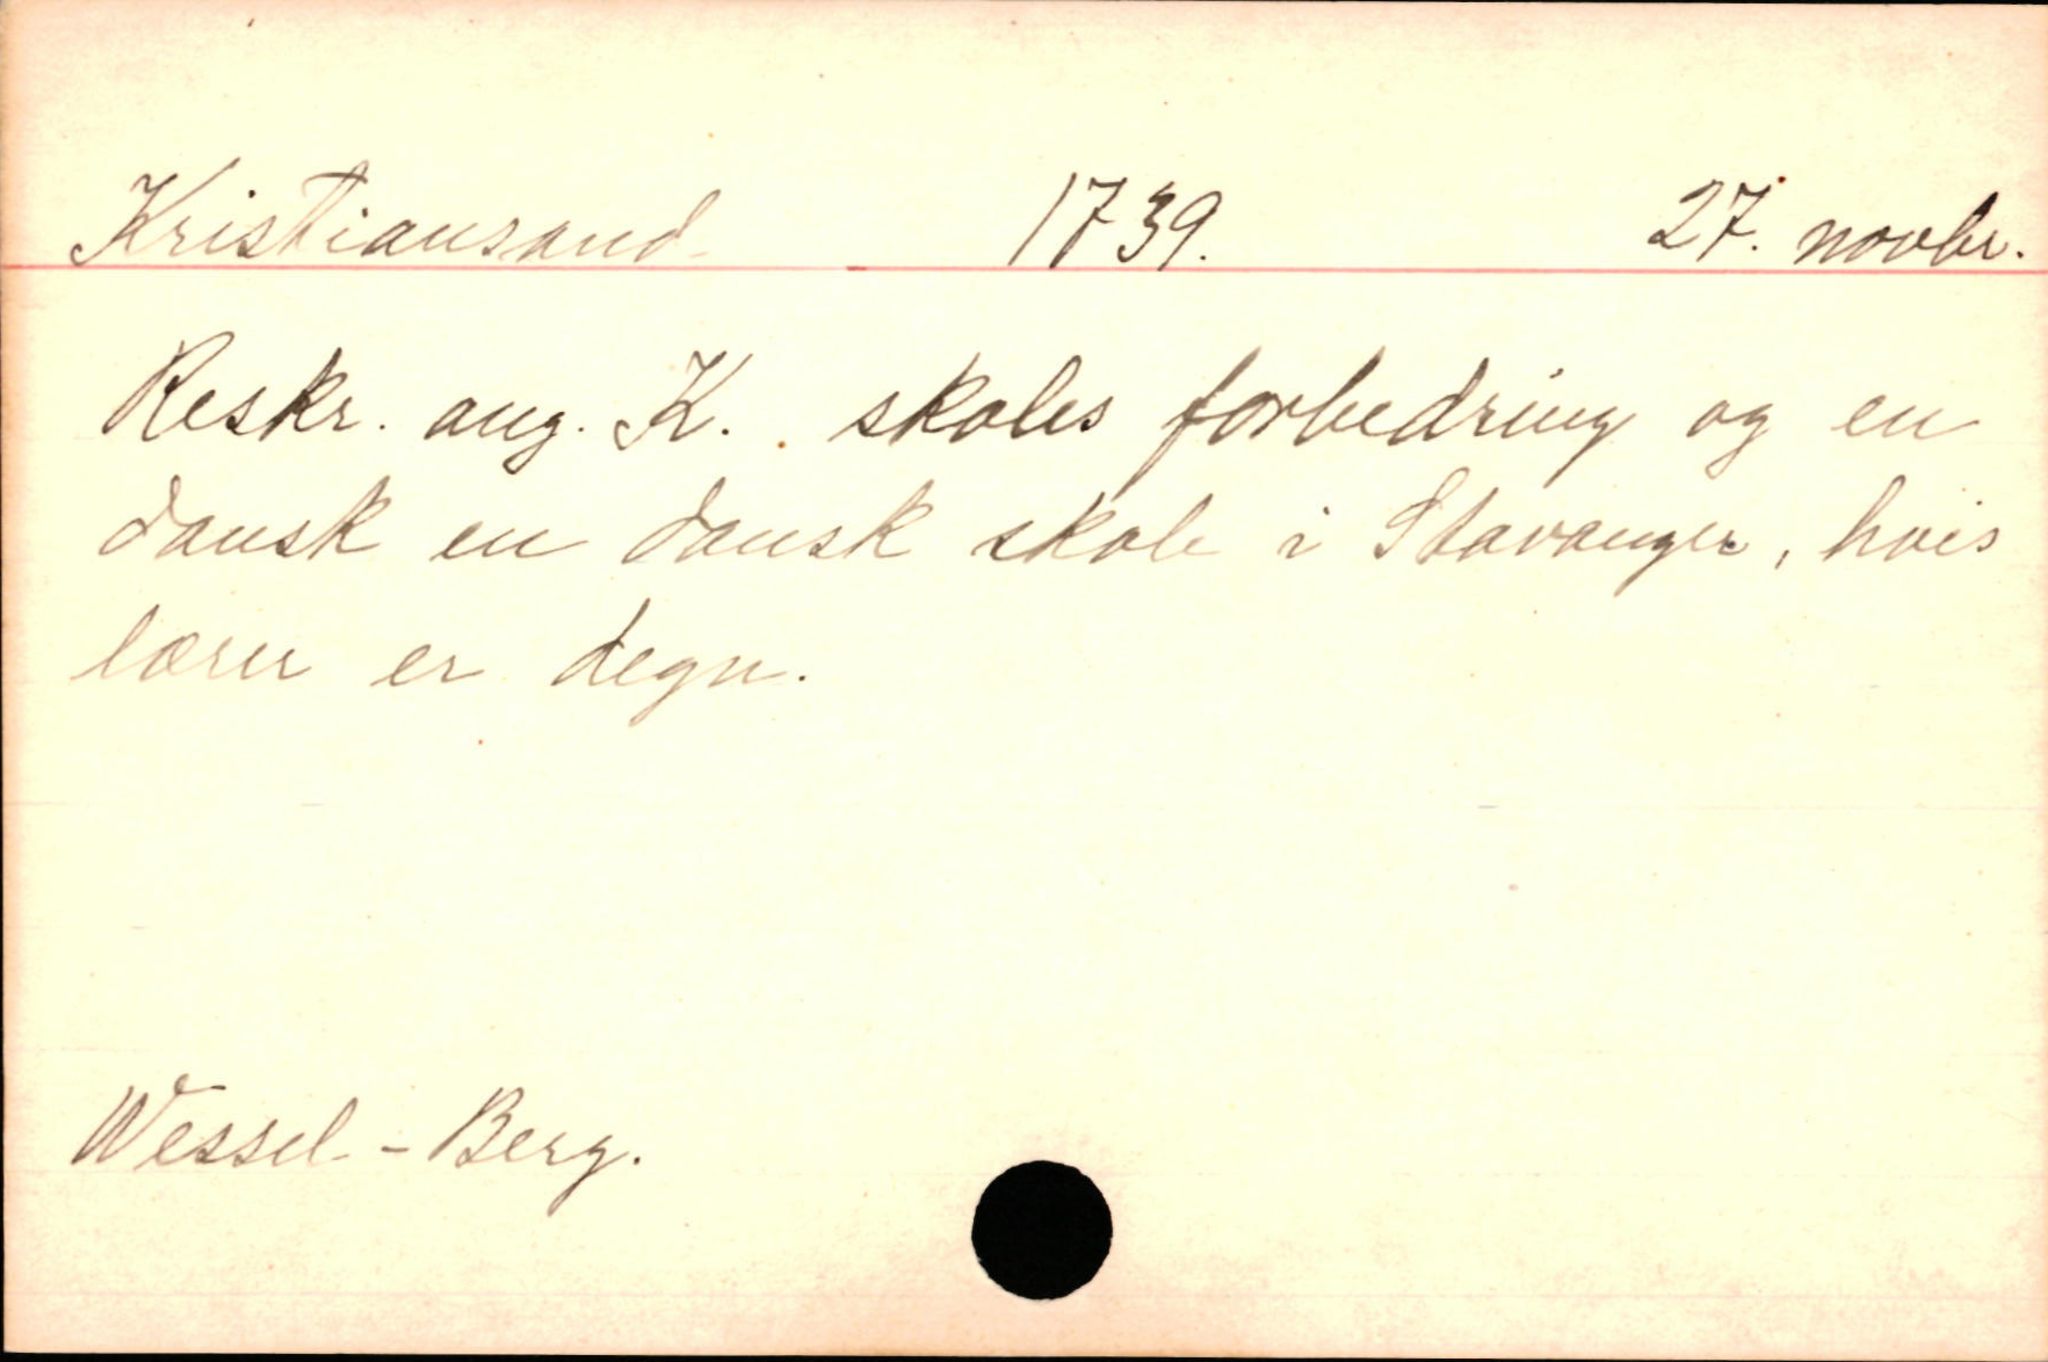 Kristiansand 1739. 27. novbr.
Reskr. ang. K. skoles forbedring og en
dansk en dansk skole i Stavanger, hvis
lærer er degn.
Wessel-Berg.